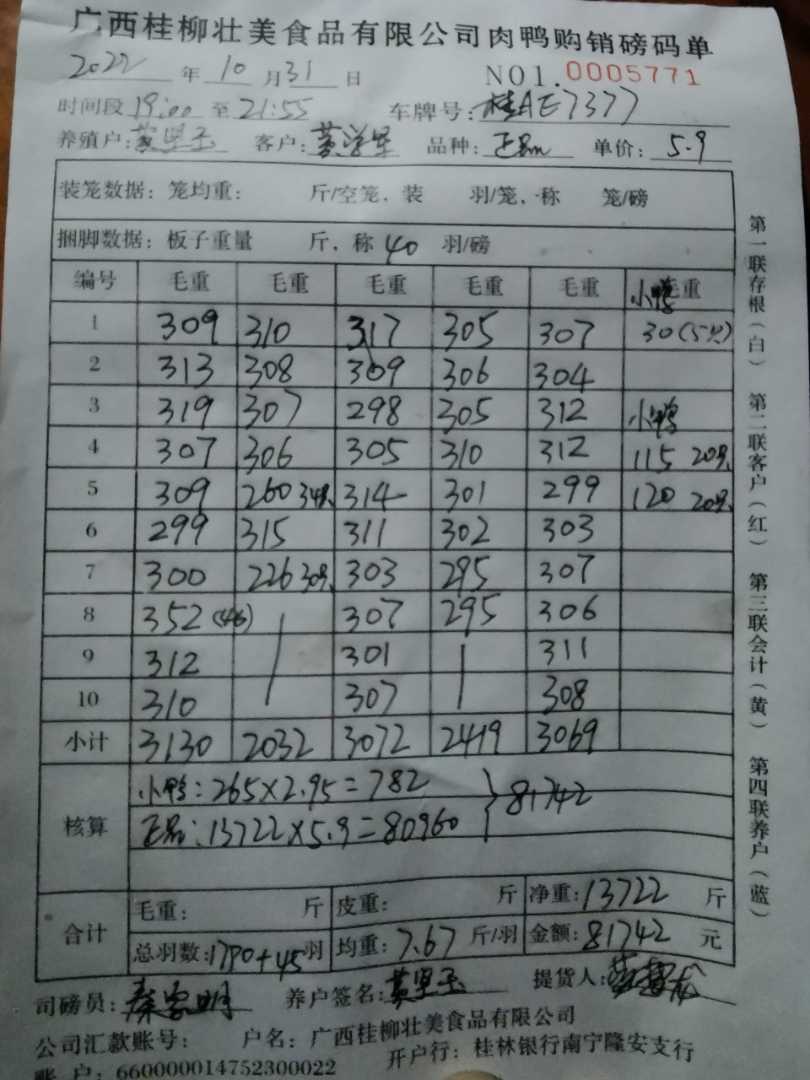 广西桂柳壮美食品有限公司肉鸭购销磅码单
2022 年 10 月 31 日 NO1.0005771
时间段 19:00 至 21:55 车牌号: 桂AE7377
养殖户: 黄坚玉 客户: 品种: 正品 单价: 5.9
装笼数据: 笼均重: 斤/空笼, 装 羽/笼, 称 笼/磅
捆脚数据: 板子重量 斤, 称 40 羽/磅
编号 毛重 毛重 毛重 毛重 毛重 小鸭 毛重
1 309 310 317 305 307 30(5只)
2 313 308 309 306 304
3 319 307 298 305 312 小鸭
4 307 306 305 310 312 115 20只
5 309 260 34只 314 301 299 120 20只
6 299 315 311 302 303
7 300 226 30只 303 295 307
8 352 (46) 307 295 306
9 312 301 311
10 310 307 308
小计 3130 2032 3072 2419 3069
核算
小鸭: 265×2.95=782
正品: 13722×5.9=80960
} 81742
合计
毛重: 斤 皮重: 斤 净重: 13722 斤
总羽数: 1790+45 羽 均重: 7.67 斤/羽 金额: 81742 元
司磅员: 秦家明 养户签名: 黄坚玉 提货人:
公司汇款账号: 户名: 广西桂柳壮美食品有限公司
账户: 660000014752300022 开户行: 桂林银行南宁隆安支行
第一联存根(白) 第二联客户(红) 第三联会计(黄) 第四联养户(蓝)